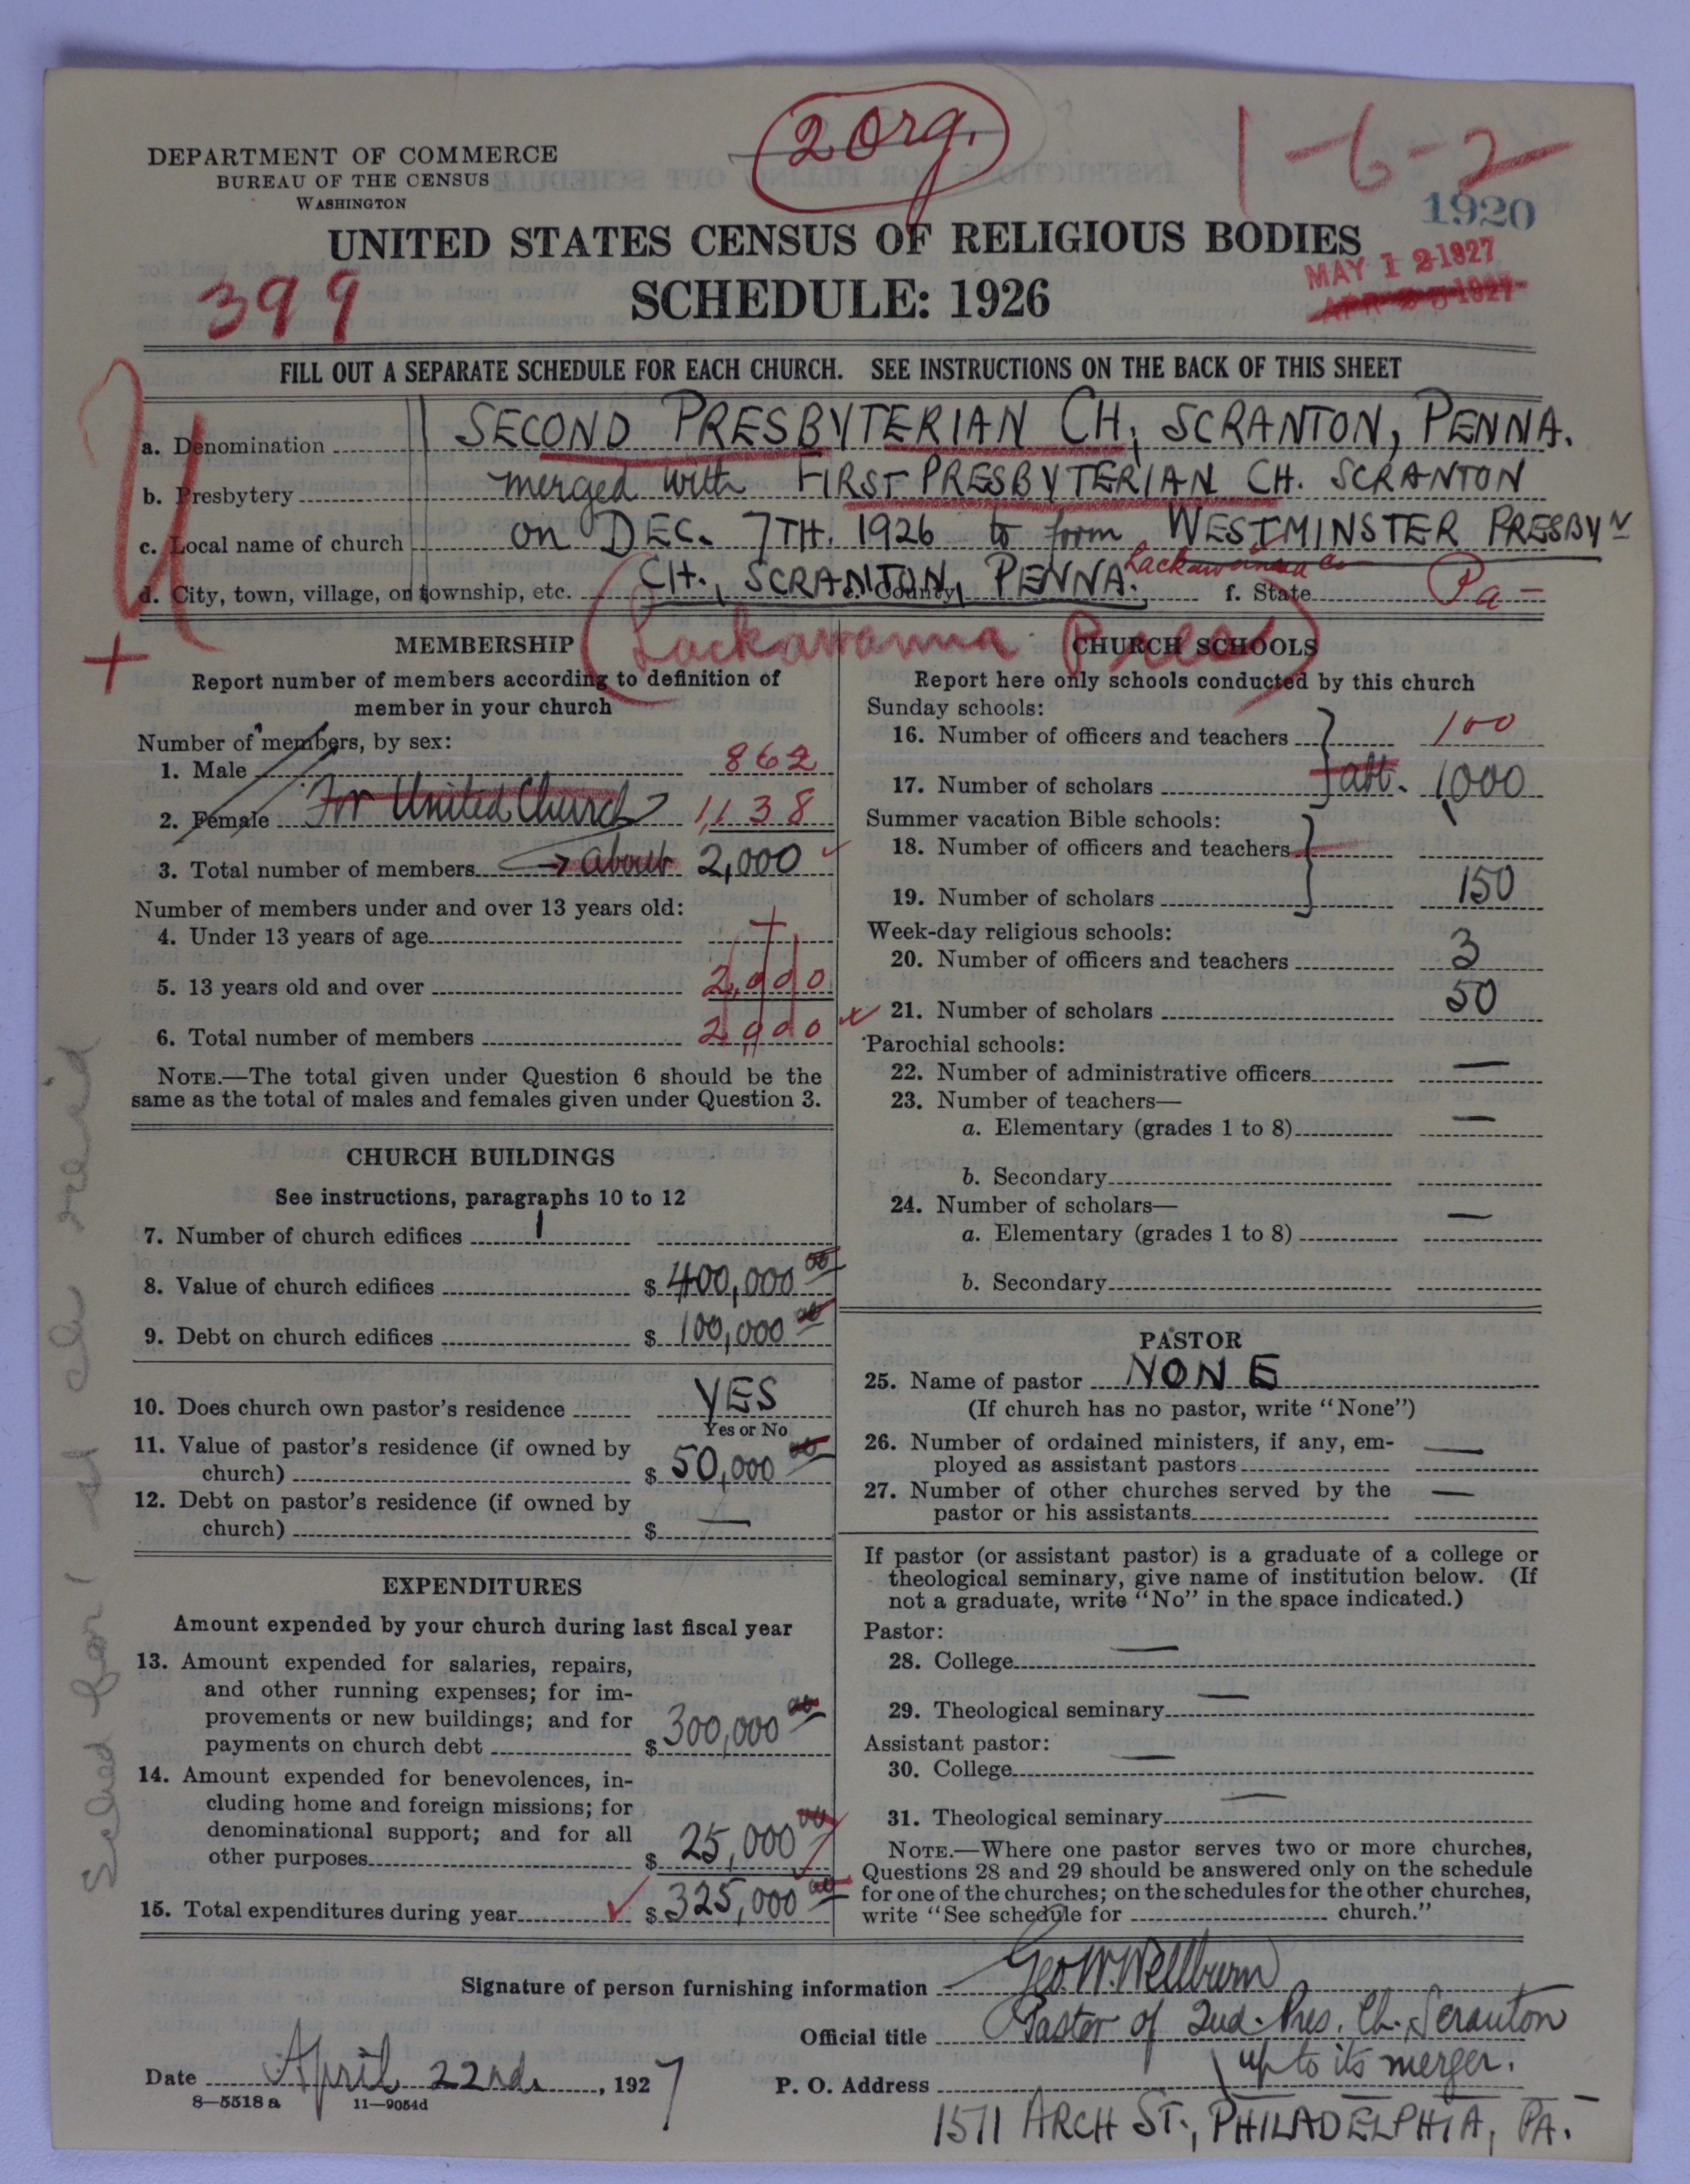 2 Org.
1-6-2
DEPARTMENT OF COMMERCE
BUREAU OF THE CENSUS
WASHINGTON
1920
UNITED STATES CENSUS OF RELIGIOUS BODIES
MAY 12 1927
399
SCHEDULE: 1926
APR 25 1927
FILL OUT A SEPARATE SCHEDULE FOR EACH CHURCH. SEE INSTRUCTIONS ON THE BACK OF THIS SHEET
a. Denomination SECOND PRESBYTERIAN CH, SCRANTON, PENNA.
b. Presbytery merged with FIRST PRESBYTERIAN CH. SCRANTON
c. Local name of church on DEC. 7TH. 1926 to form WESTMINSTER PRESBYN
d. City, town, village, or township, etc. CH., SCRANTON, PENNA. e. County Lackawanna Co f. State Pa-
Lackawanna Pres
MEMBERSHIP
Report number of members according to definition of
member in your church
Number of members, by sex:
1. Male 862
2. Female For United Church 1,138
3. Total number of members → about 2,000
Number of members under and over 13 years old:
4. Under 13 years of age
5. 13 years old and over 2,000
6. Total number of members 2,000
NOTE.—The total given under Question 6 should be the
same as the total of males and females given under Question 3.
CHURCH BUILDINGS
See instructions, paragraphs 10 to 12
7. Number of church edifices 1
8. Value of church edifices $ 400,000 00
9. Debt on church edifices $ 100,000 00
10. Does church own pastor's residence YES
Yes or No
11. Value of pastor's residence (if owned by
church) $ 50,000 00
12. Debt on pastor's residence (if owned by
church) $ —
EXPENDITURES
Amount expended by your church during last fiscal year
13. Amount expended for salaries, repairs,
and other running expenses; for im-
provements or new buildings; and for
payments on church debt $ 300,000 00
14. Amount expended for benevolences, in-
cluding home and foreign missions; for
denominational support; and for all
other purposes $ 25,000 00
15. Total expenditures during year $ 325,000 00
CHURCH SCHOOLS
Report here only schools conducted by this church
Sunday schools:
16. Number of officers and teachers 100
17. Number of scholars abt. 1,000
Summer vacation Bible schools:
18. Number of officers and teachers
19. Number of scholars 150
Week-day religious schools:
20. Number of officers and teachers 3
21. Number of scholars 50
Parochial schools:
22. Number of administrative officers —
23. Number of teachers—
a. Elementary (grades 1 to 8) —
b. Secondary
24. Number of scholars—
a. Elementary (grades 1 to 8) —
b. Secondary
PASTOR
25. Name of pastor NONE
(If church has no pastor, write "None")
26. Number of ordained ministers, if any, em-
ployed as assistant pastors —
27. Number of other churches served by the
pastor or his assistants —
If pastor (or assistant pastor) is a graduate of a college or
theological seminary, give name of institution below. (If
not a graduate, write "No" in the space indicated.)
Pastor:
28. College —
29. Theological seminary —
Assistant pastor:
30. College —
31. Theological seminary —
NOTE.—Where one pastor serves two or more churches,
Questions 28 and 29 should be answered only on the schedule
for one of the churches; on the schedules for the other churches,
write "See schedule for church."
Signature of person furnishing information Geo W. Wellburn
Official title Pastor of 2nd. Pres. Ch. Scranton
up to its merger.
Date April 22nd, 1927
P. O. Address
1511 ARCH ST., PHILADELPHIA, PA.
8—5518 a 11—9054d